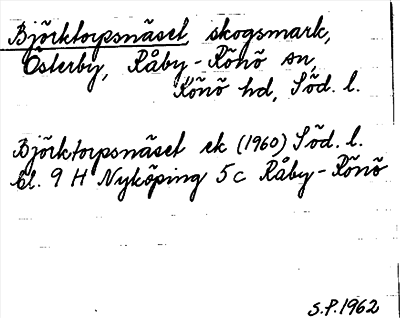 Björktorpsnäset skogsmark,
Österby, Råby-Rönö sn,
Rönö hd, Söd. l.
Björktorpsnäset ek (1960) Söd. l.
bl. 9 H Nyköping 5c Råby-Rönö
S.P. 1962